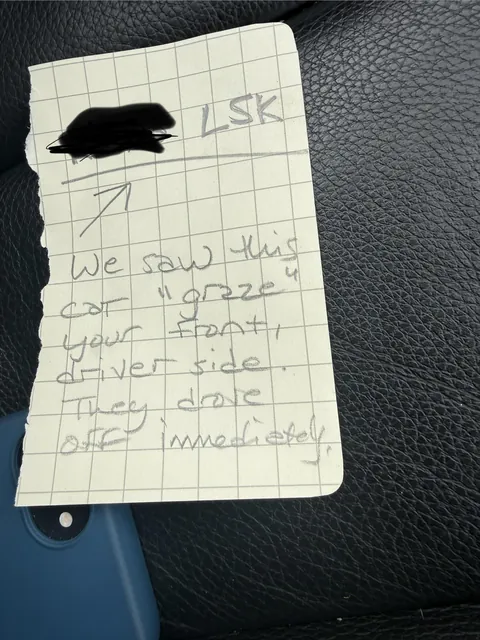 LSK
We saw this
car "graze"
your front,
driver side.
They drove
off immediately.